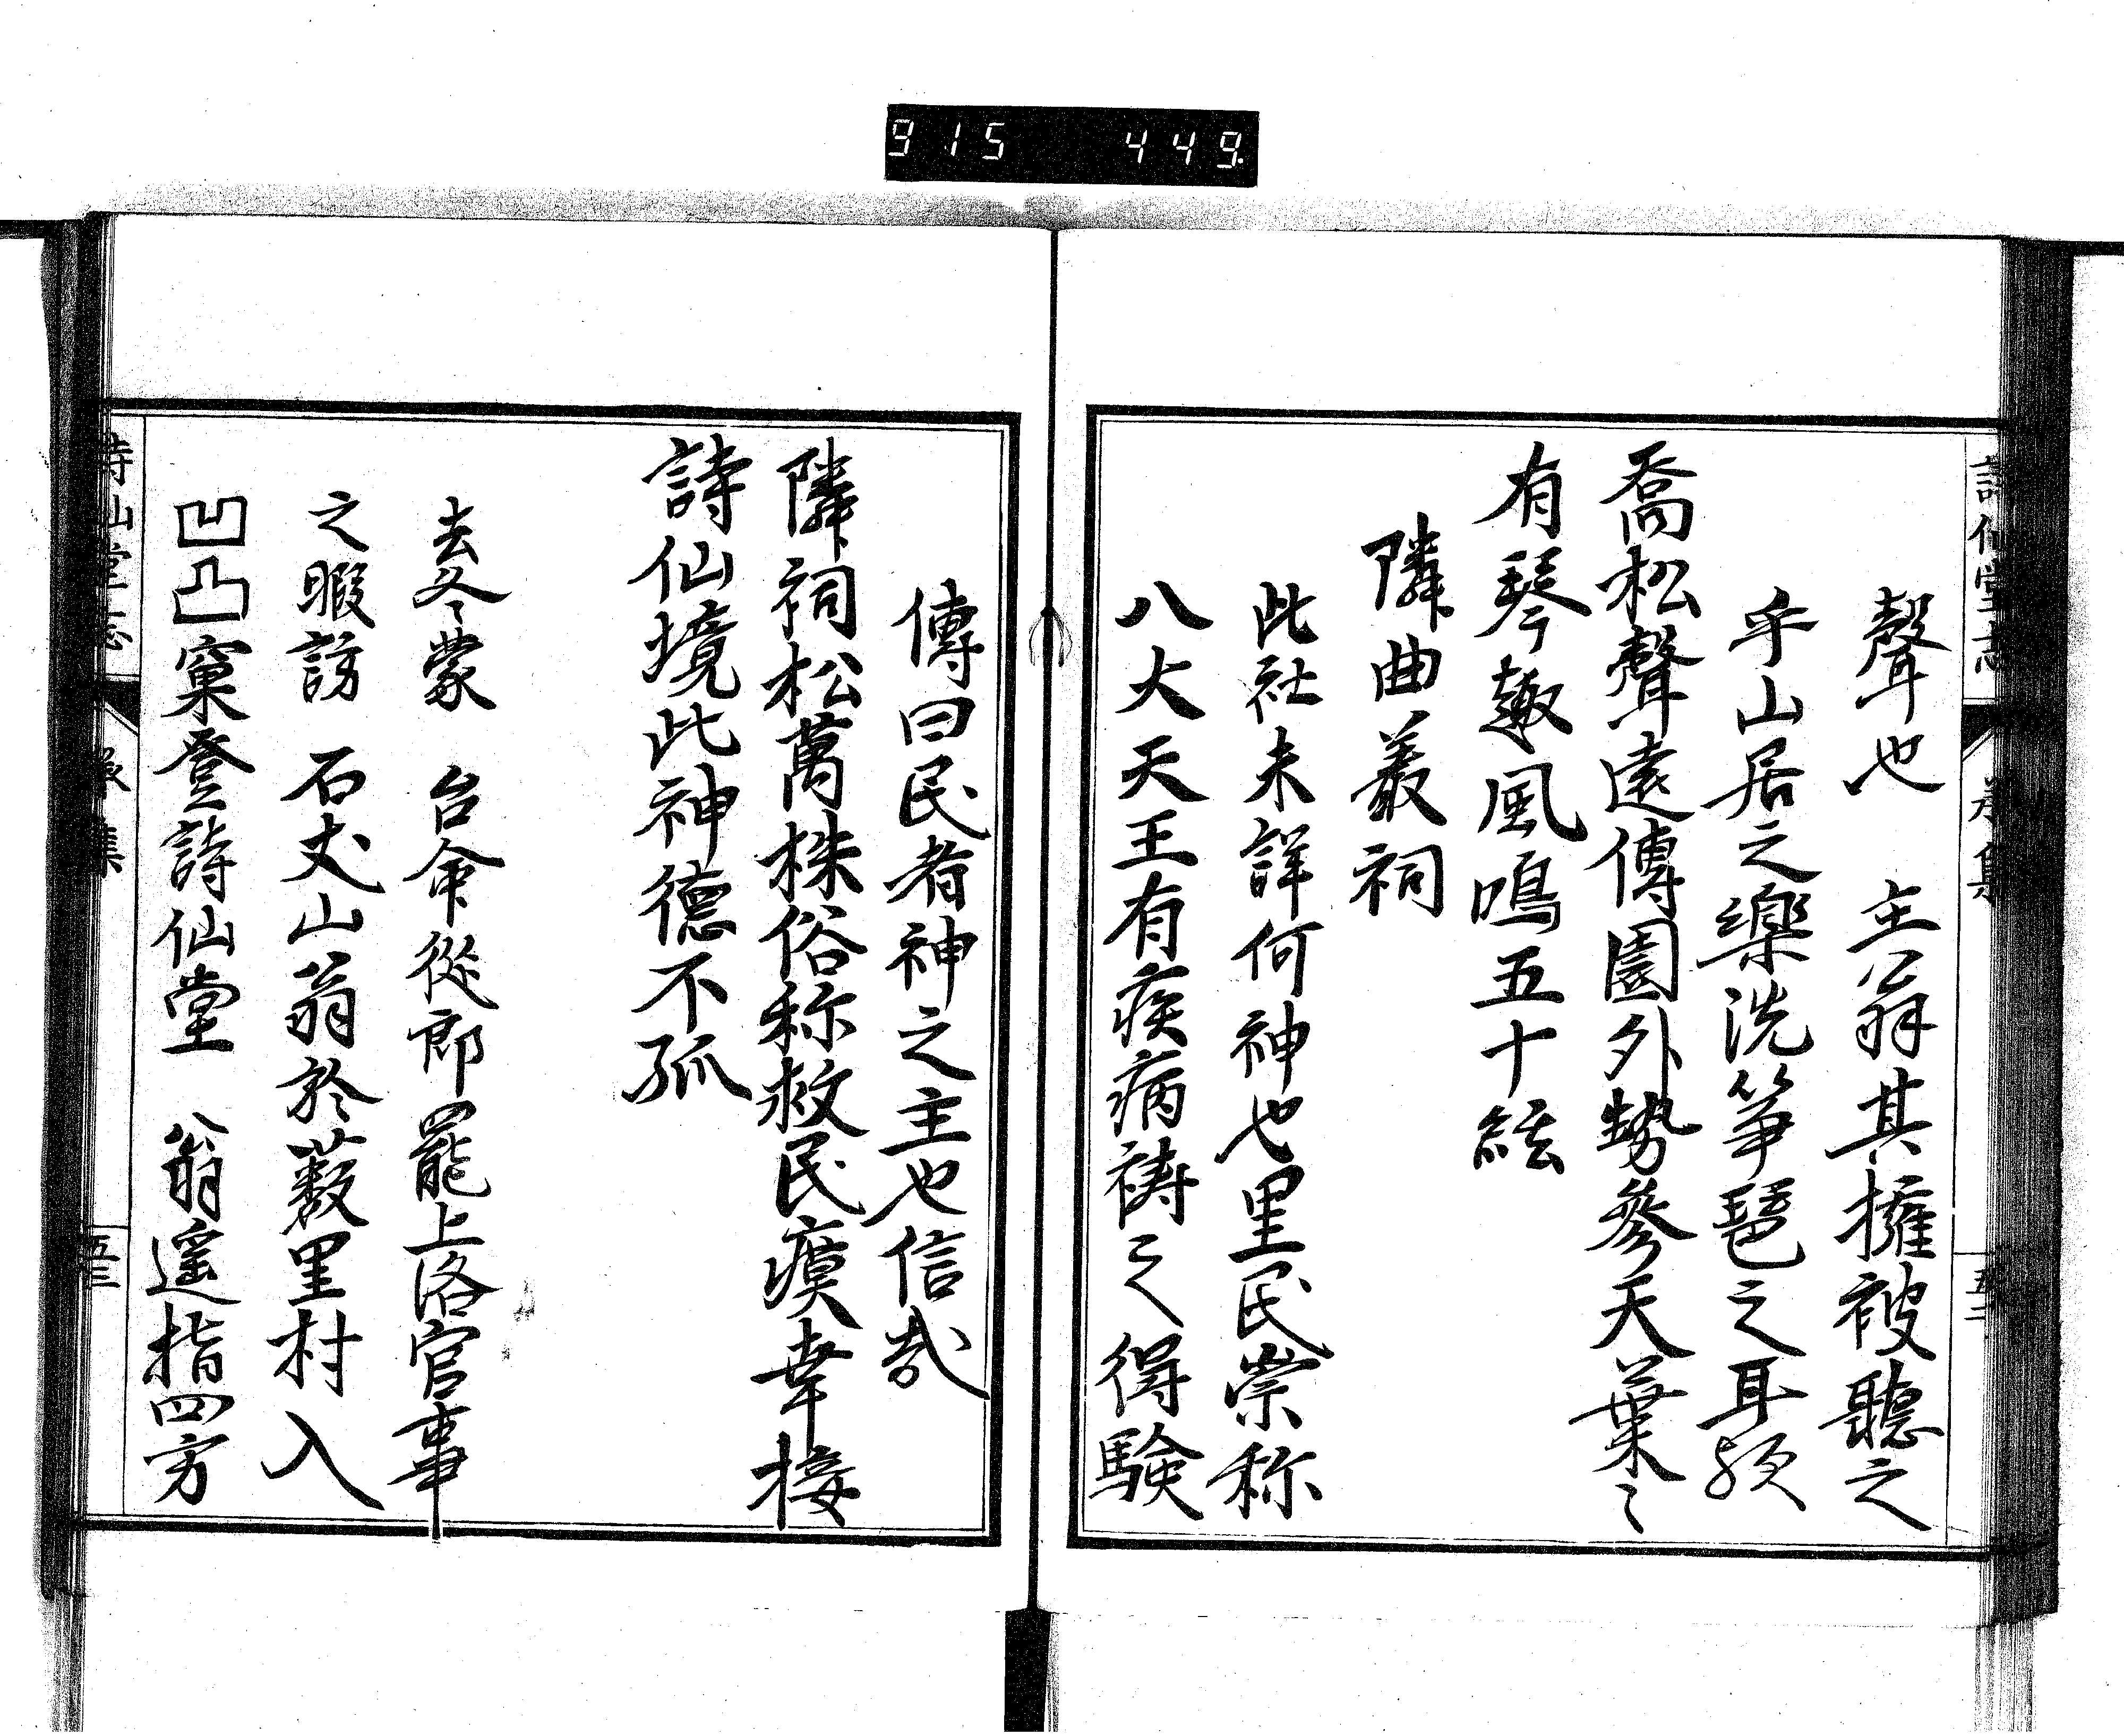 915 449
聲也 主翁其擁被聽之
乎山居之樂洗箏琶之耳
喬松聲遠傳園外勢參天葉〻
有琴趣風鳴五十絃
隣曲叢祠
此社未詳何神也里民崇称
八大天王有疾病祷之得験
傳曰民者神之主也信哉
隣祠松萬株俗称救民瘼幸接
詩仙境此神德不孤
去冬蒙 台命從郎罷上洛官事
之暇訪 石丈山翁於薮里村入
凹凸窠登詩仙堂 翁遥指四方
詩仙堂志
集
五三